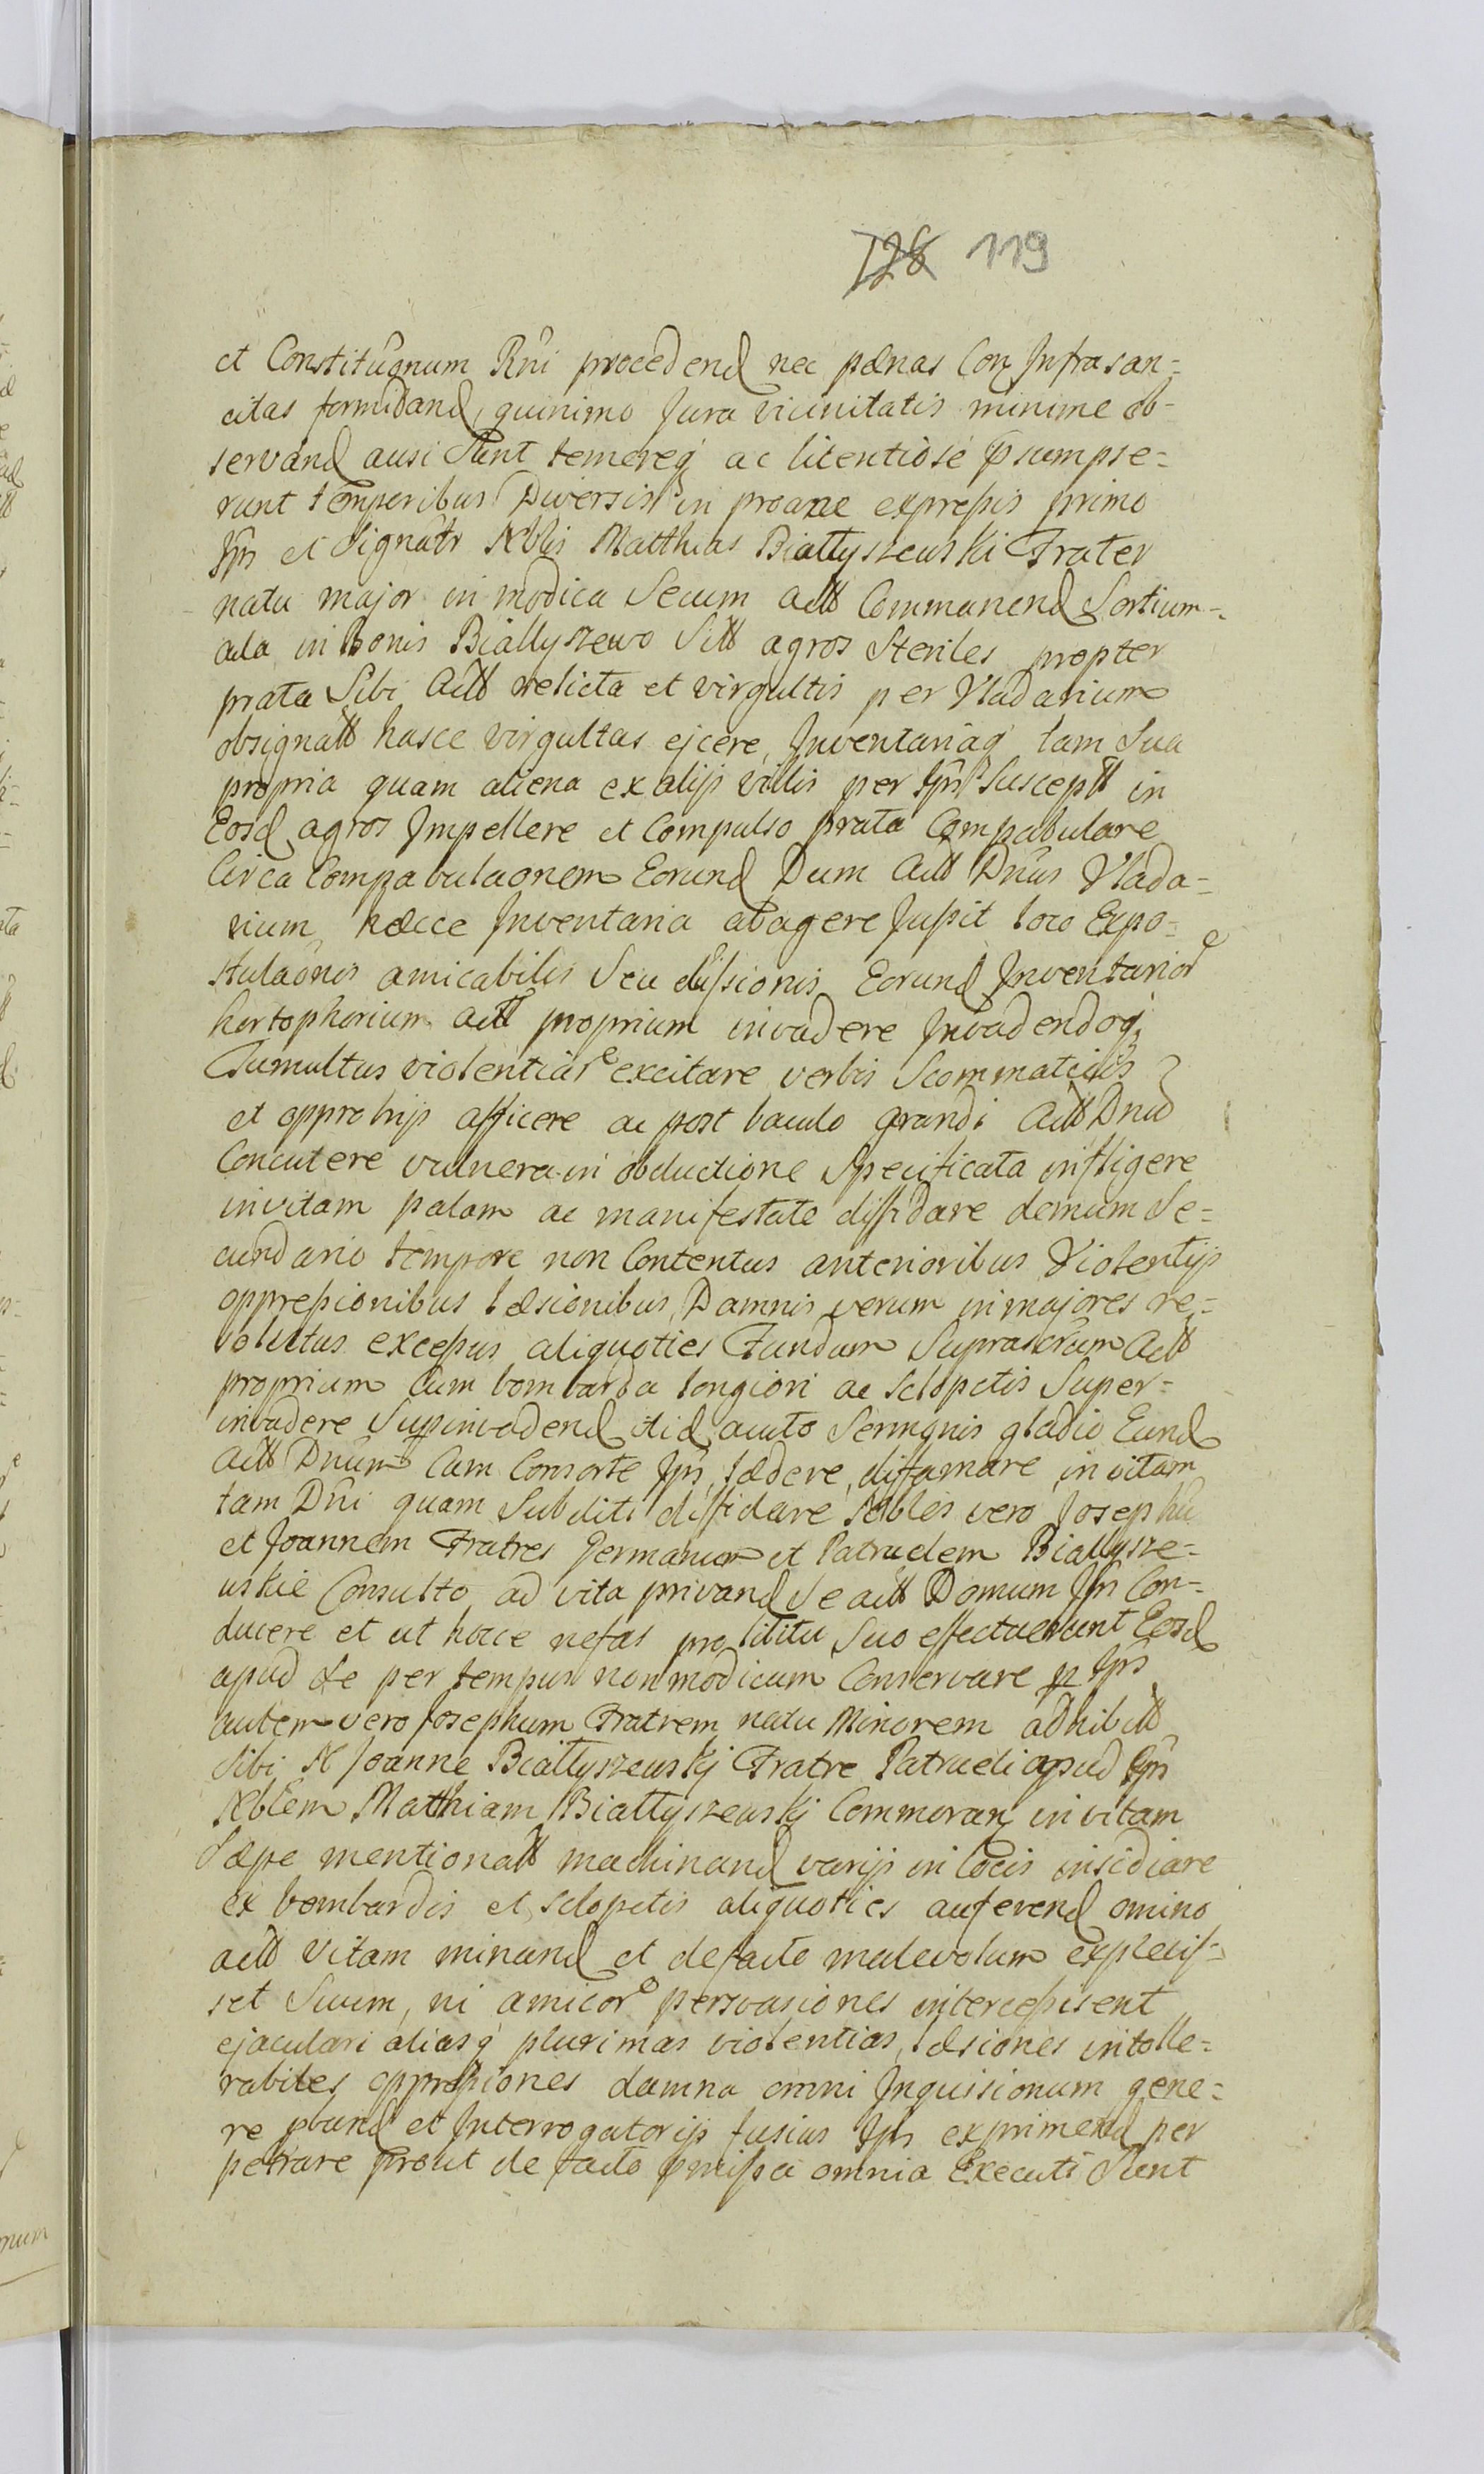 128 119
et Constitūonum Rñi procedend nec pœnas Con Infrasan=
citas formidand, quinimo Jura vicinitatis minime ob-
servand ausi sunt temereq ac licentiose p̄sumpse=
runt temporibus Diversis in proaxe expressis primo
Jps et signātr Nblis Matthias Białłyszewski Frater
natu major in modica Secum actt Commanend Sortium-
cula in bonis Białłyszewo Sitt agros Steriles propter
prata Sibi Actt relicta et virgultis per Vladarium
obsignatt hasce virgultas ejcere, Inventariaq tam Sua
propria quam aliena ex alijs villis per Jps Suscept in
Eosd agros Impellere et Compulso prata Compabulare
Circa Compabulaonem Eorund Dum Actt Dnus Vlada=
rium hæcce Inventaria abagere Jussit loco Expo=
stulaonis amicabilis Seu Eorund Inventarior
hortophorium actt proprium invadere Invadendoq
Tumultus violentiar excitare verbis Scommaticis
et opprobrijs afficere ac post baculo grandi Actt Dnũ
Concutere vulnera in obductione Specificata infligere
invitam palam ac manifestate diffidare demum Se=
cundario tempore non Contentus anterioribus Violentijs
oppressionibus læsionibus, Damnis verum in majores re=
volutus excessus aliquoties Fundum Suprascrūm Actt
proprium Cum bombarda longiori ac Sclopetis Super=
invadere Supinvadend itid acuto Serinquis gladio Eund
Actt Dnum Cum Consorte Jps, lædere, diffamare, in vitam
tam Dñi quam Subditi diffidare Nbles vero Josephũ
et Joannem Fratres Germanum et Patruelem Białłysze=
wskie Consulto ad vita privand Se actt Domum Jps Con-
ducere et ut hocce nefas pro libitu Suo effectuerunt Eosd
apud Se per tempus non modicum Conservare p Jps
autem vero Josephum Fratrem natu Minorem adhibitt
Sibi N Joanne Białłyszewskj Fratre Patrueli apud Jps
Nblem Matthiam Białłyszewskj Commoran in vitam
Sæpe mentionatt machinand varijs in locis insidiare
ex bombardis et Sclopetis aliquoties auferend omino
actt Vitam minand et de facto malevolum explevis-
set Suum, ni amicor persvasiones intercepissent
ejaculari aliasq plurimas violentias, læsiones intolle=
rabiles oppressiones damna omni Inquisicionum gene=
re pband et Interrogatorijs fusius Jps exprimend per
petrare prout de facto p̄missa omnia Executi Sunt